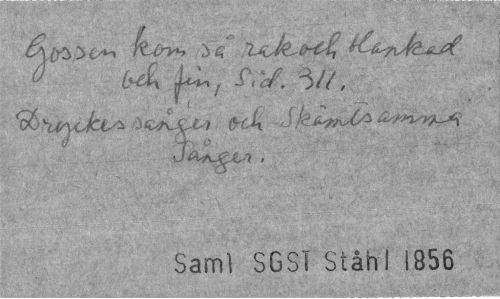 Gossen kom så rak och blankad
och fin, Sid. 311.
Dryckessånger och Skämtsamma
Sånger.
Saml SGST Ståhl 1856